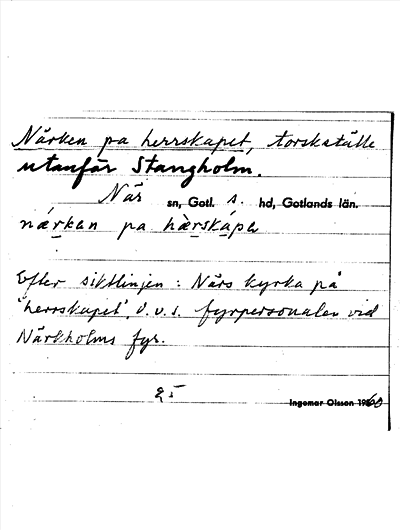 Närken pa herrskapet, torskställe
utanför Stangholm.
När sn, Gotl. s. hd, Gotlands län.
nærkan pa hærskápa
Efter siktlinjen: Närs kyrka på
"herrskapet", d.v.s. fyrpersonalen vid
Närkholms fyr.
25
Ingemar Olsson 1960